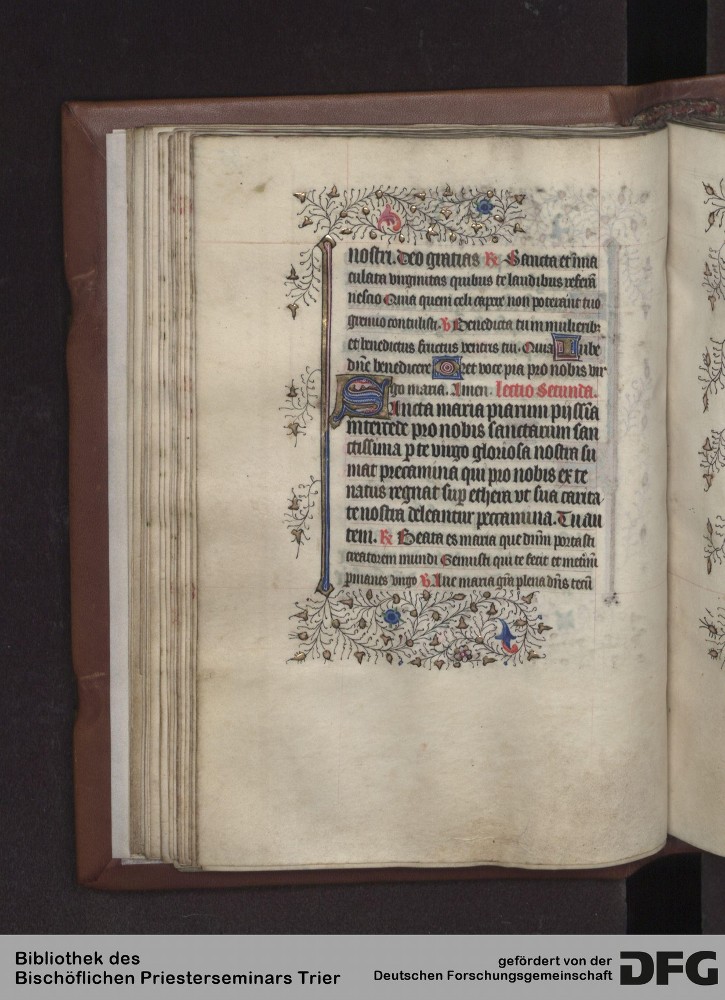 nostri. Deo gratias ℟ Sancta et īma
culata virginitas quibus te laudibus referā
nescio Quia quem celi capere non poterant tuo
gremio contulisti. ℣ Benedicta tu in mulierib;
et benedictus fructus ventris tui. Quia Iube
dn̄e benedicere Oret voce pia pro nobis vir
go maria. Amen. Lectio Secunda.
Sancta maria piarum pijssīa
intercede pro nobis sanctarum san
ctissima p te virgo gloriosa nostra su
mat precamina qui pro nobis ex te
natus regnat sup ethera vt sua carita
te nostra deleantur peccamina. Tu au
tem. ℟ Beata es maria que dn̄m portasti
creatorem mundi Genuisti qui te fecit et
pmanes virgo ℣ Aue maria gr̄a plena dn̄s tecū
Bibliothek des
Bischöflichen Priesterseminars Trier
gefördert von der
Deutschen Forschungsgemeinschaft
DFG